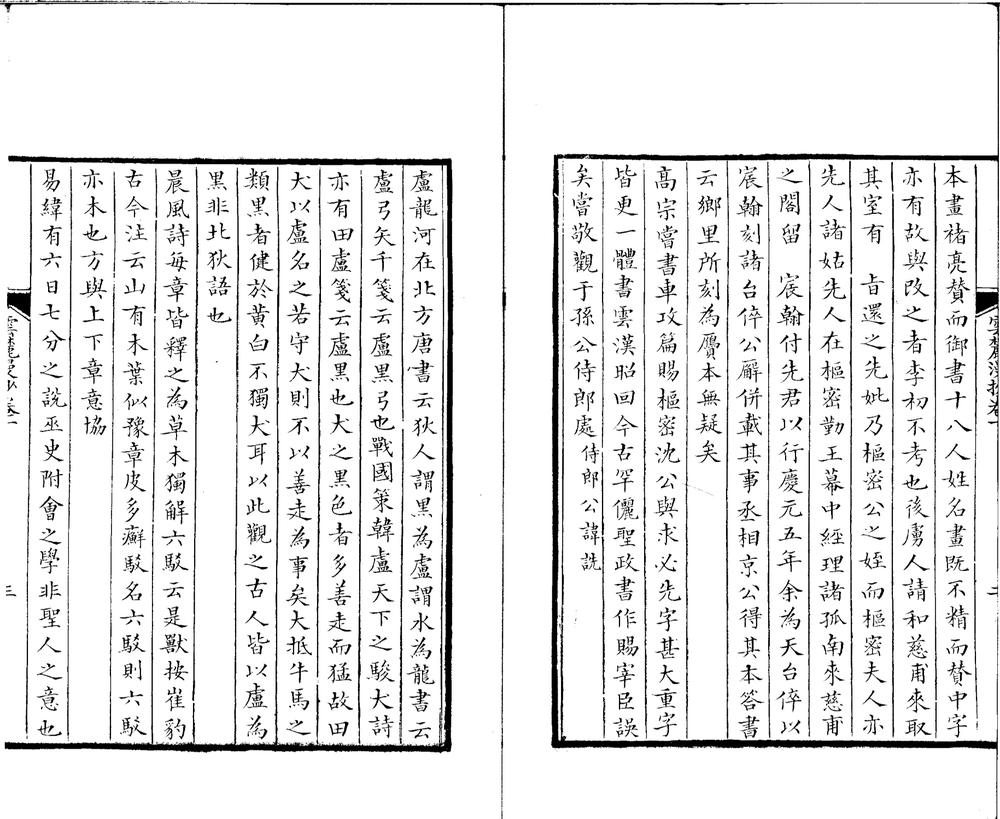 本畫褚亮贊而御書十八人姓名畫既不精而贊中字
亦有故與改之者李初不考也後虜人請和慈甫來取
其室有　旨還之先妣乃樞密公之姪而樞密夫人亦
先人諸姑先人在樞密勤王幕中經理諸孤南來慈甫
之閤留　宸翰付先君以行慶元五年余為天台倅以
宸翰刻諸台倅公廨併載其事丞相京公得其本答書
云鄉里所刻為贗本無疑矣
高宗嘗書車攻篇賜樞密沈公與求必先字甚大重字
皆更一體書雲漢昭回今古罕儷聖政書作賜宰臣誤
矣嘗敬觀于孫公侍郎處侍郎公諱詵
雲麓漫抄卷一
二
盧龍河在北方唐書云狄人謂黑為盧謂水為龍書云
盧弓矢千箋云盧黑弓也戰國策韓盧天下之駿犬詩
亦有田盧箋云盧黑也犬之黑色者多善走而猛故田
犬以盧名之若守犬則不以善走為事矣大抵牛馬之
類黑者健於黃白不獨犬耳以此觀之古人皆以盧為
黑非北狄語也
晨風詩每章皆釋之為草木獨解六駁云是獸按崔豹
古今注云山有木葉似豫章皮多癬駁名六駁則六駁
亦木也方與上下章意協
易緯有六日七分之說巫史附會之學非聖人之意也
雲麓漫抄卷一
三